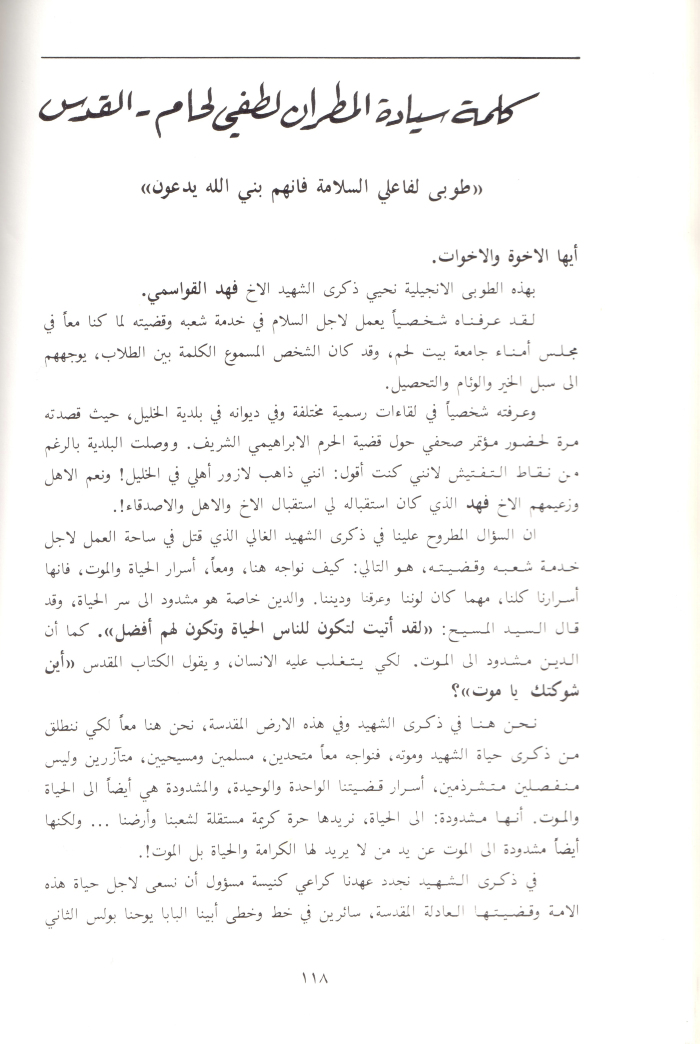 كلمة سيادة المطران لطفي لحام - القدس
«طوبى لفاعلي السلامة فانهم بني الله يدعون»
أيها الاخوة والاخوات.
بهذه الطوبى الانجيلية نحيي ذكرى الشهيد الاخ فهد القواسمي.
لقد عرفناه شخصياً يعمل لاجل السلام في خدمة شعبه وقضيته لما كنا معاً في
مجلس أمناء جامعة بيت لحم، وقد كان الشخص المسموع الكلمة بين الطلاب، يوجههم
الى سبل الخير والوئام والتحصيل.
وعرفته شخصياً في لقاءات رسمية مختلفة وفي ديوانه في بلدية الخليل، حيث قصدته
مرة لحضور مؤتمر صحفي حول قضية الحرم الابراهيمي الشريف. ووصلت البلدية بالرغم
من نقاط التفتيش لانني كنت أقول: انني ذاهب لازور أهلي في الخليل! ونعم الاهل
وزعيمهم الاخ فهد الذي كان استقباله لي استقبال الاخ والاهل والاصدقاء!.
ان السؤال المطروح علينا في ذكرى الشهيد الغالي الذي قتل في ساحة العمل لاجل
خدمة شعبه وقضيته، هو التالي: كيف نواجه هنا، ومعاً، أسرار الحياة والموت، فانها
أسرارنا كلنا، مهما كان لوننا وعرقنا وديننا. والدين خاصة هو مشدود الى سر الحياة، وقد
قال السيد المسيح: «لقد أتيت لتكون للناس الحياة وتكون لهم أفضل». كما أن
الدين مشدود الى الموت. لكي يتغلب عليه الانسان، ويقول الكتاب المقدس «أين
شوكتك يا موت»؟
نحن هنا في ذكرى الشهيد وفي هذه الارض المقدسة، نحن هنا معاً لكي ننطلق
من ذكرى حياة الشهيد وموته، فنواجه معاً متحدين، مسلمين ومسيحيين، متآزرين وليس
منفصلين متشرذمين، أسرار قضيتنا الواحدة والوحيدة، والمشدودة هي أيضاً الى الحياة
والموت. أنها مشدودة: الى الحياة، نريدها حرة كريمة مستقلة لشعبنا وأرضنا ... ولكنها
أيضاً مشدودة الى الموت عن يد من لا يريد لها الكرامة والحياة بل الموت!.
في ذكرى الشهيد نجدد عهدنا كراعي كنيسة مسؤول أن نسعى لاجل حياة هذه
الامة وقضيتها العادلة المقدسة، سائرين في خط وخطى أبينا البابا يوحنا بولس الثاني
١١٨